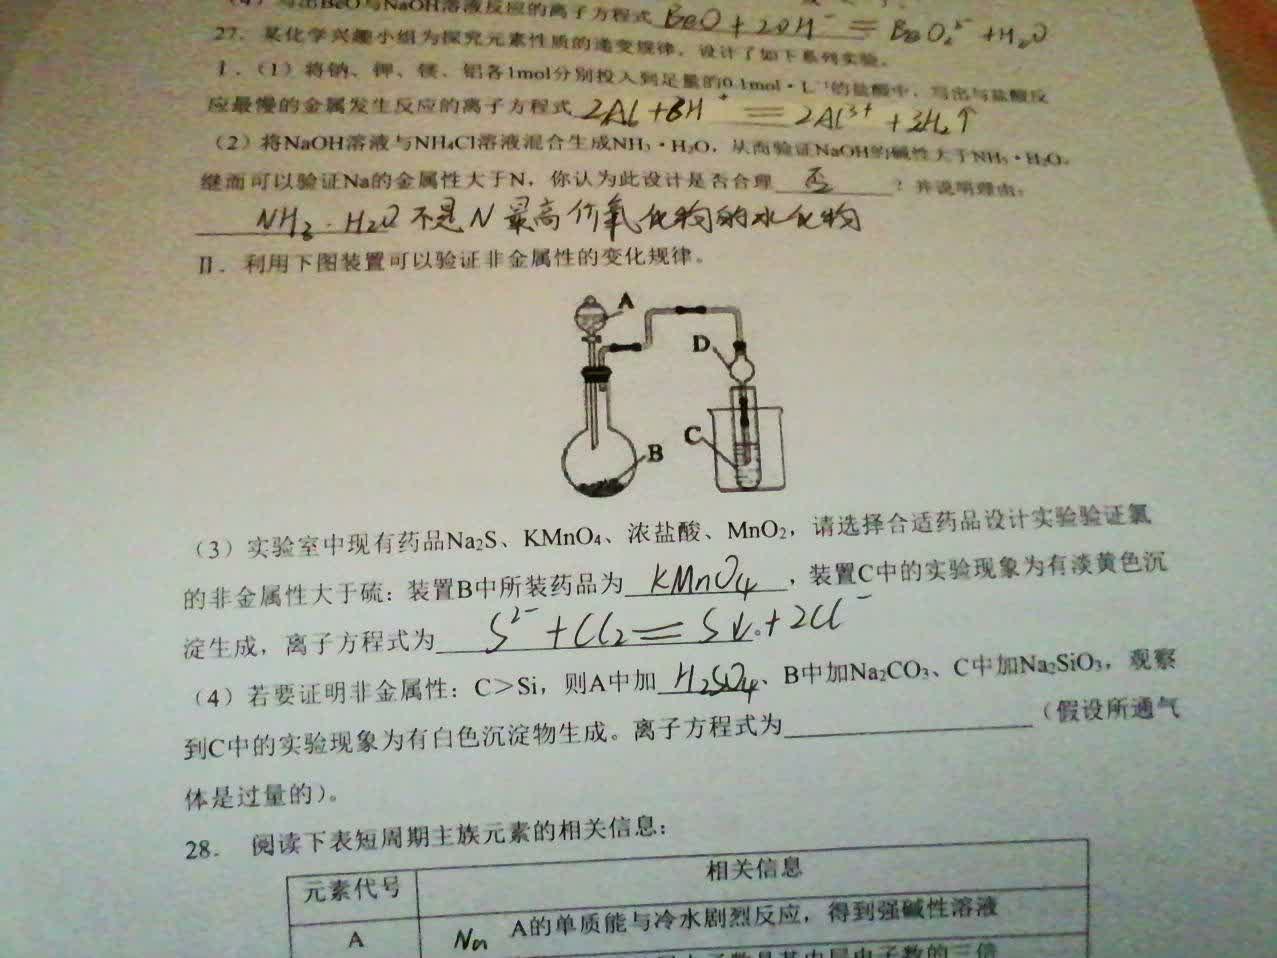 (4) 写出BeO与NaOH溶液反应的离子方程式 BeO + 2OH⁻ = BeO₂²⁻ + H₂O
27. 某化学兴趣小组为探究元素性质的递变规律，设计了如下系列实验。
Ⅰ.（1）将钠、钾、镁、铝各1mol分别投入到足量的0.1mol·L⁻¹的盐酸中，写出与盐酸反
应最慢的金属发生反应的离子方程式 2Al + 6H⁺ = 2Al³⁺ + 3H₂↑
（2）将NaOH溶液与NH₄Cl溶液混合生成NH₃·H₂O，从而验证NaOH的碱性大于NH₃·H₂O，
继而可以验证Na的金属性大于N，你认为此设计是否合理 否 ？并说明理由：
NH₃·H₂O 不是N最高价氧化物的水化物
Ⅱ. 利用下图装置可以验证非金属性的变化规律。
A
D
C
B
（3）实验室中现有药品Na₂S、KMnO₄、浓盐酸、MnO₂，请选择合适药品设计实验验证氯
的非金属性大于硫：装置B中所装药品为 KMnO₄ ，装置C中的实验现象为有淡黄色沉
淀生成，离子方程式为 S²⁻ + Cl₂ = S↓ + 2Cl⁻ 。
（4）若要证明非金属性：C＞Si，则A中加 H₂SO₄ 、B中加Na₂CO₃、C中加Na₂SiO₃，观察
到C中的实验现象为有白色沉淀物生成。离子方程式为____________（假设所通气
体是过量的）。
28. 阅读下表短周期主族元素的相关信息：
元素代号 相关信息
A Na A的单质能与冷水剧烈反应，得到强碱性溶液